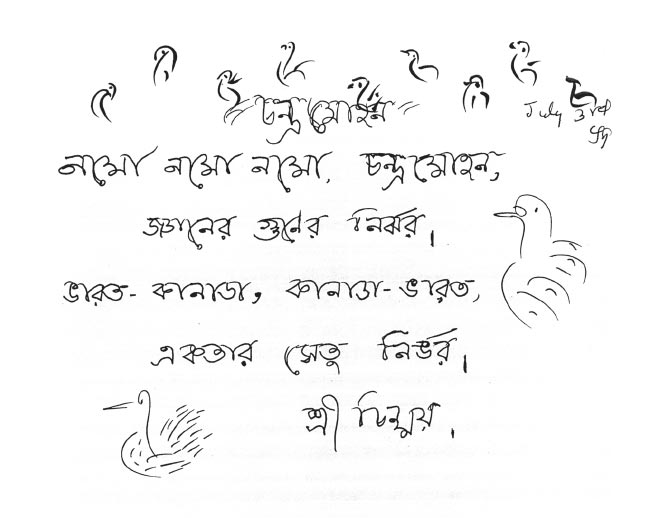 চন্দ্রমোহন
July 3rd
নমো নমো নমো, চন্দ্রমোহন,
জ্ঞানের গুণের নির্ঝর।
ভারত-কানাডা, কানাডা-ভারত,
একতার সেতু নির্ভর।
শ্রী চিন্ময়।